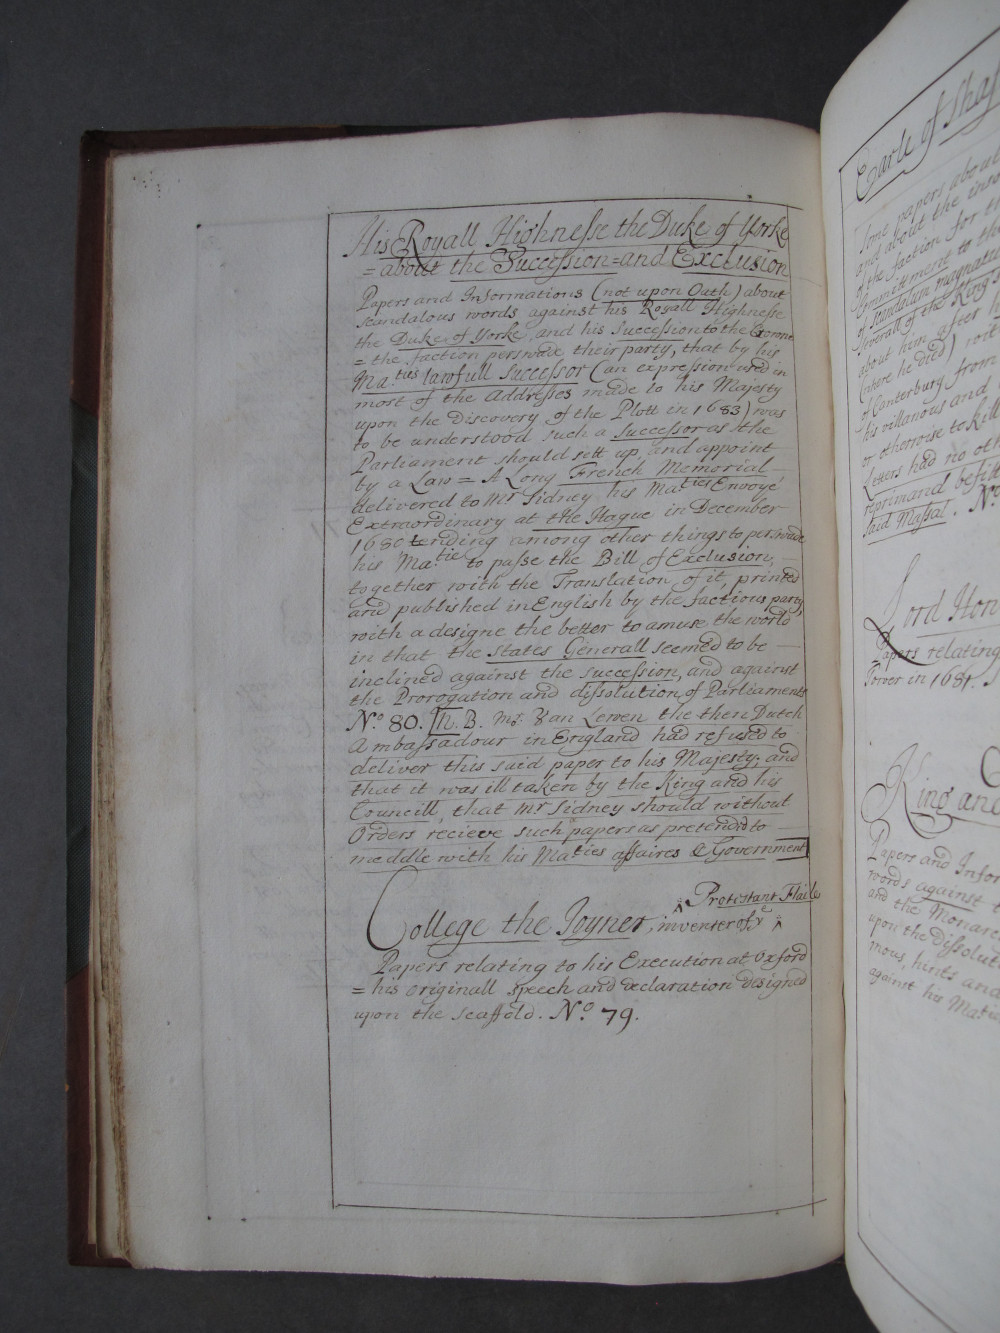 His Royall Highnesse the Duke of Yorke
= about the Succession = and Exclusion
Papers and Informations (not upon Oath) about
scandalous words against his Royall Highnesse
the Duke of Yorke, and his Succession to the Crowne
= the faction perswade their party, that by his
Ma.ties lawfull Successor (an expression used in
most of the Addresses made to his Majesty
upon the Discovery of the Plott in 1683) was
to be understood such a Successor as the
Parliament should sett up, and appoint
by a Law = A Long French Memorial
delivered to Mr Sidney his Ma.ties Envoyé
Extraordinary at the Hague in December
1680 tending among other things to perswade
his Ma.tie to passe the Bill of Exclusion,
together with the Translation of it, printed
and published in English by the factious party,
with a designe the better to amuse the world
in that the States Generall seemed to be
inclined against the succession, and against
the Prorogation and dissolution of Parliaments
No. 80. [N. B. Mr. Van Lewen the then Dutch
Ambassadour in England had refused to
deliver this said paper to his Majesty; and
that it was ill taken by the King and his
Councill, that Mr Sidney should without
Orders recieve such papers as pretended to
meddle with his Ma.ties affaires & Government]
Protestant Flaile
College the Joyner, inventer of ye
Papers relating to his Execution at Oxford
= his originall speech and declaration designed
upon the scaffold. No. 79.
Earle of Shaf
Some papers about
and about the inso
of the faction for th
Committment to the
of scandalum magnatu
severall of the King's
about him after h
(where he died) wit
of Canterbury from
his villanous and
or otherwise to kill
Letters had no oth
reprimand besid
said Massal. No.
Lord How
Papers relating
Tower in 1681.
King and
Papers and Infor
words against
and the Monarc
upon the Dissolut
mous, hints and
against his Ma.tie